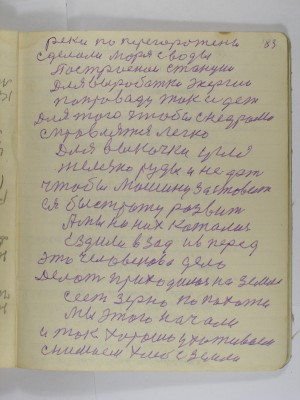 83
реки по перегорожени
сделали моря с воды
Построеной станции
для выработка Энергию
по проваду ток идет
для того чтобы с недрами
справлятся легко
Для выкочки угля
железно руды и не дат
чтобы машину заставит
ся быстрату розвит
Амы на них катались
Ездили в зад ив перед
это человецова дело
делот приходится на земли
сеет зерно по пахоти
мы этого начали
и так хорошо ухаживаем
снимаем хлеб с земли